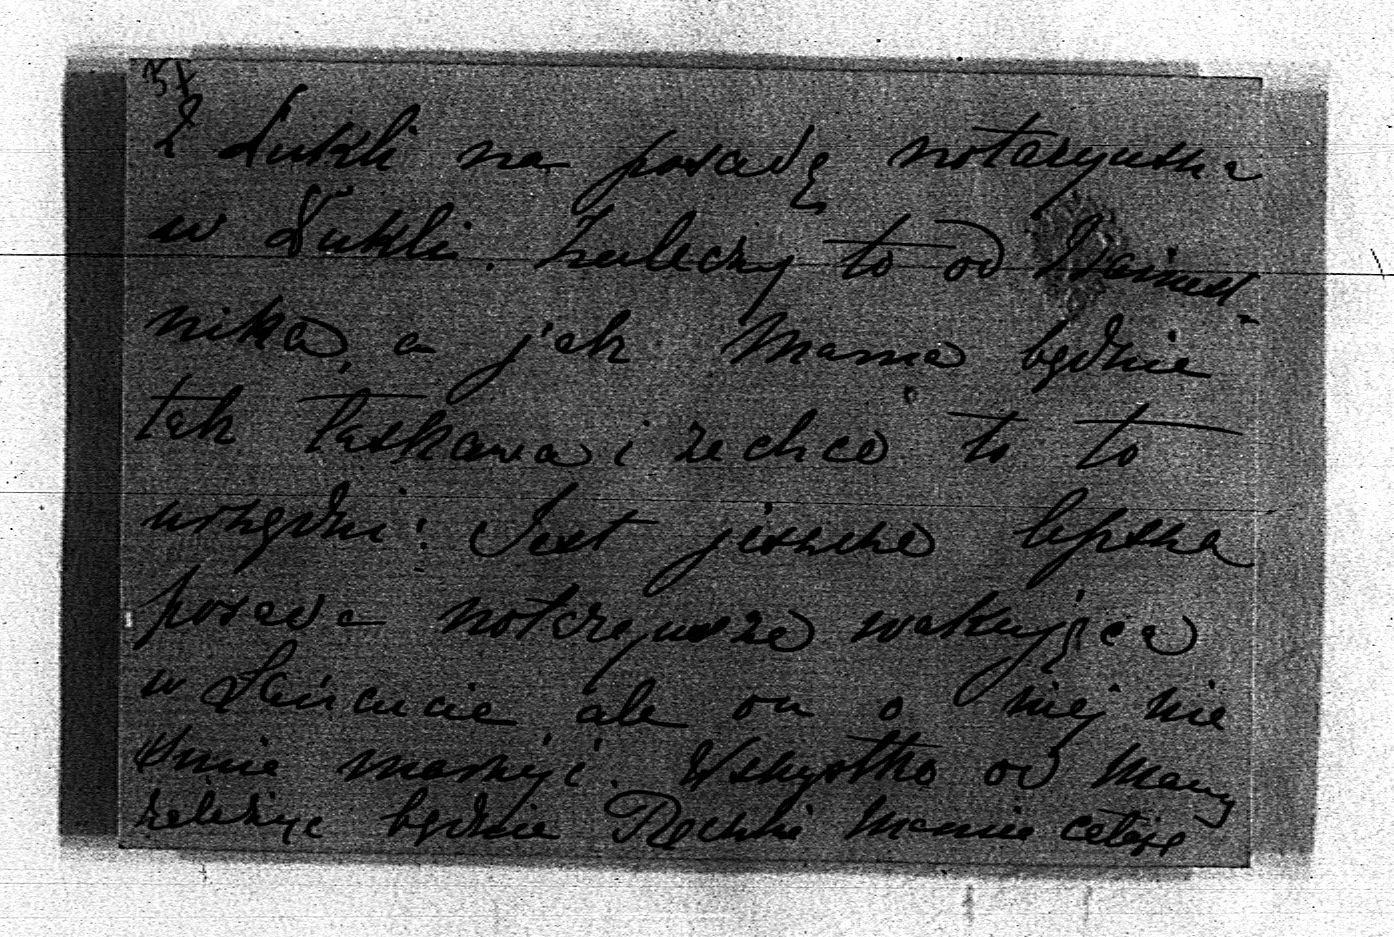 z Dukli na posadę notaryusza
w Dukli. Zależy to od Namiest-
nika, a jak Mama będzie
tak łaskawa i zechce to to
urządzi! Jest jeszcze lepsza
posada notaryusza wakująca
w Łańcucie ale on o niej nie
śmie marzyć. Wszystko od Mamy
zależyć będzie Rączki Mamie całuję